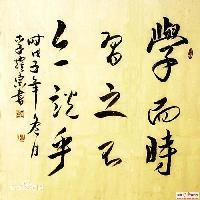 學而時
習之不
亦說乎
時戊子年冬月
李宗書